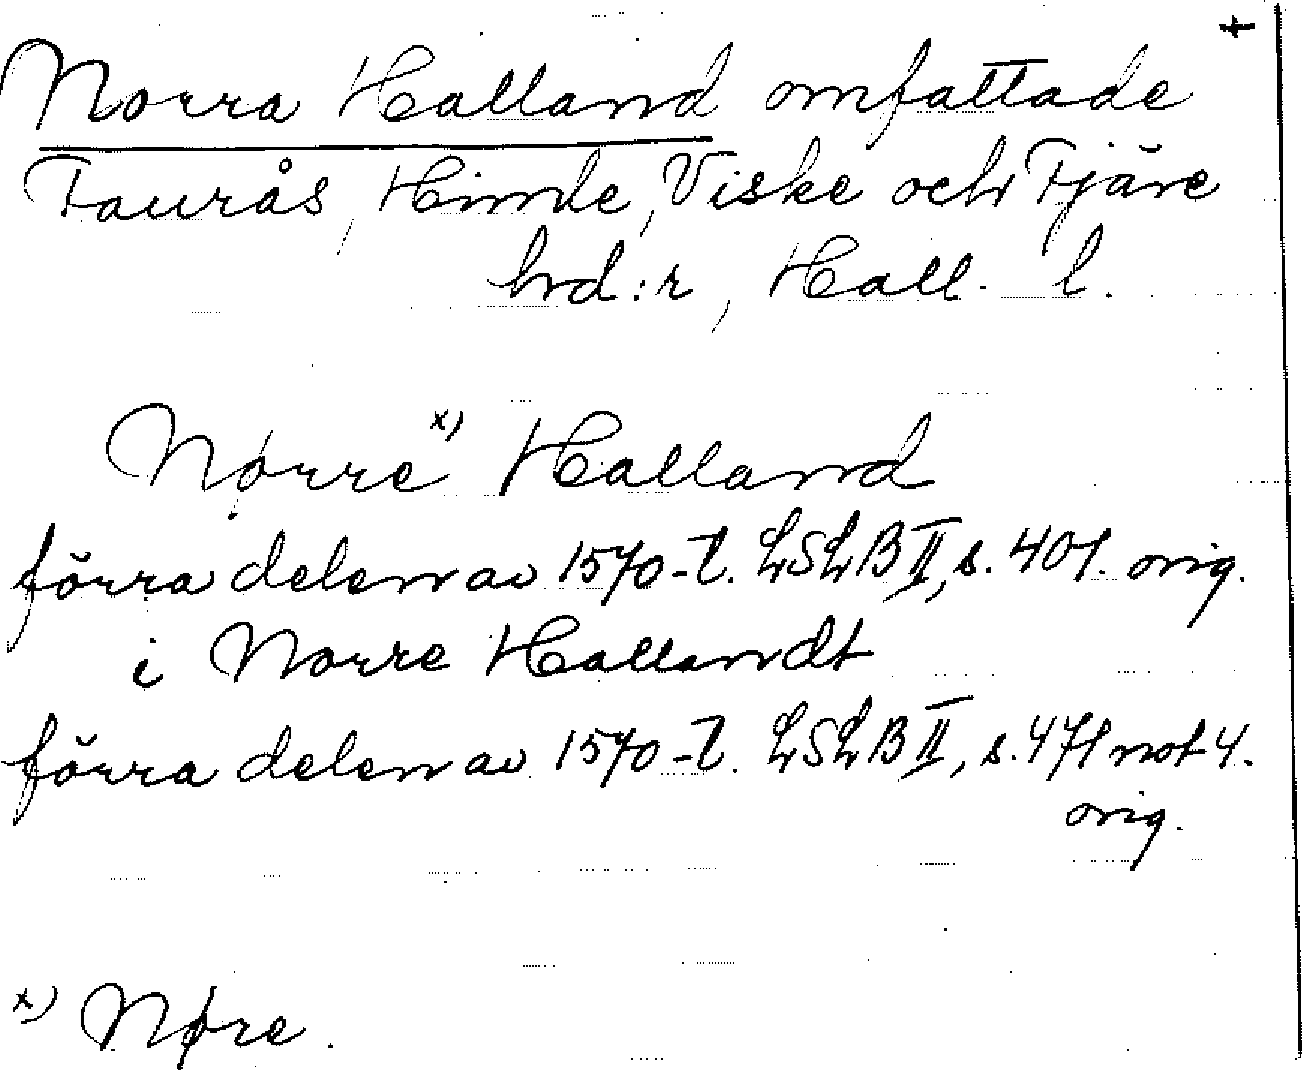 †
Norra Halland omfattade
Faurås, Himle, Viske och Fjäre
hd:r, Hall. l.
Nørre x) Halland
förra delen av 1570-t. LSLB II, s. 401. orig.
i Norre Hallandt
förra delen av 1570-t. LSLB II, s. 471 not 4.
orig.
x) Nøre.